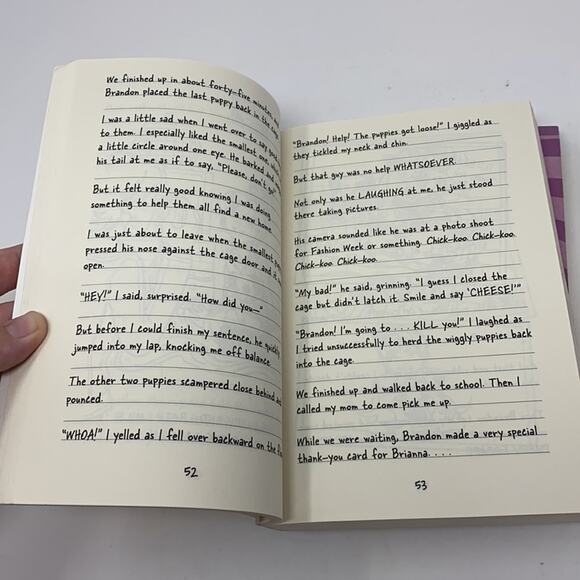 We finished up in about forty-five minutes, and
Brandon placed the last puppy back in the
I was a little sad when I went over to say
to them. I especially liked the smallest one
a little circle around one eye. He barked and
his tail at me as if to say, "Please, don't
But it felt really good knowing I was doing
something to help them all find a new home.
I was just about to leave when the smallest
pressed his nose against the cage door and it
open.
"HEY!" I said, surprised. "How did you–"
But before I could finish my sentence, he quickly
jumped into my lap, knocking me off balance.
The other two puppies scampered close behind
pounced.
"WHOA!" I yelled as I fell over backward on the
52
"Brandon! Help! The puppies got loose!" I giggled as
they tickled my neck and chin.
But that guy was no help WHATSOEVER.
Not only was he LAUGHING at me, he just stood
there taking pictures.
His camera sounded like he was at a photo shoot
for Fashion Week or something. Chick-koo. Chick-koo.
Chick-koo. Chick-koo.
"My bad!" he said, grinning. "I guess I closed the
cage but didn't latch it. Smile and say 'CHEESE!'"
"Brandon! I'm going to . . . KILL you!" I laughed as
I tried unsuccessfully to herd the wiggly puppies back
into the cage.
We finished up and walked back to school. Then I
called my mom to come pick me up.
While we were waiting, Brandon made a very special
thank-you card for Brianna. . . .
53